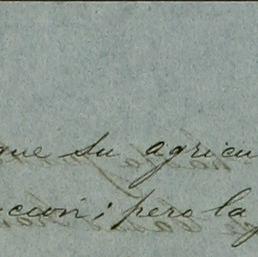 que su agricu
ccion; pero la